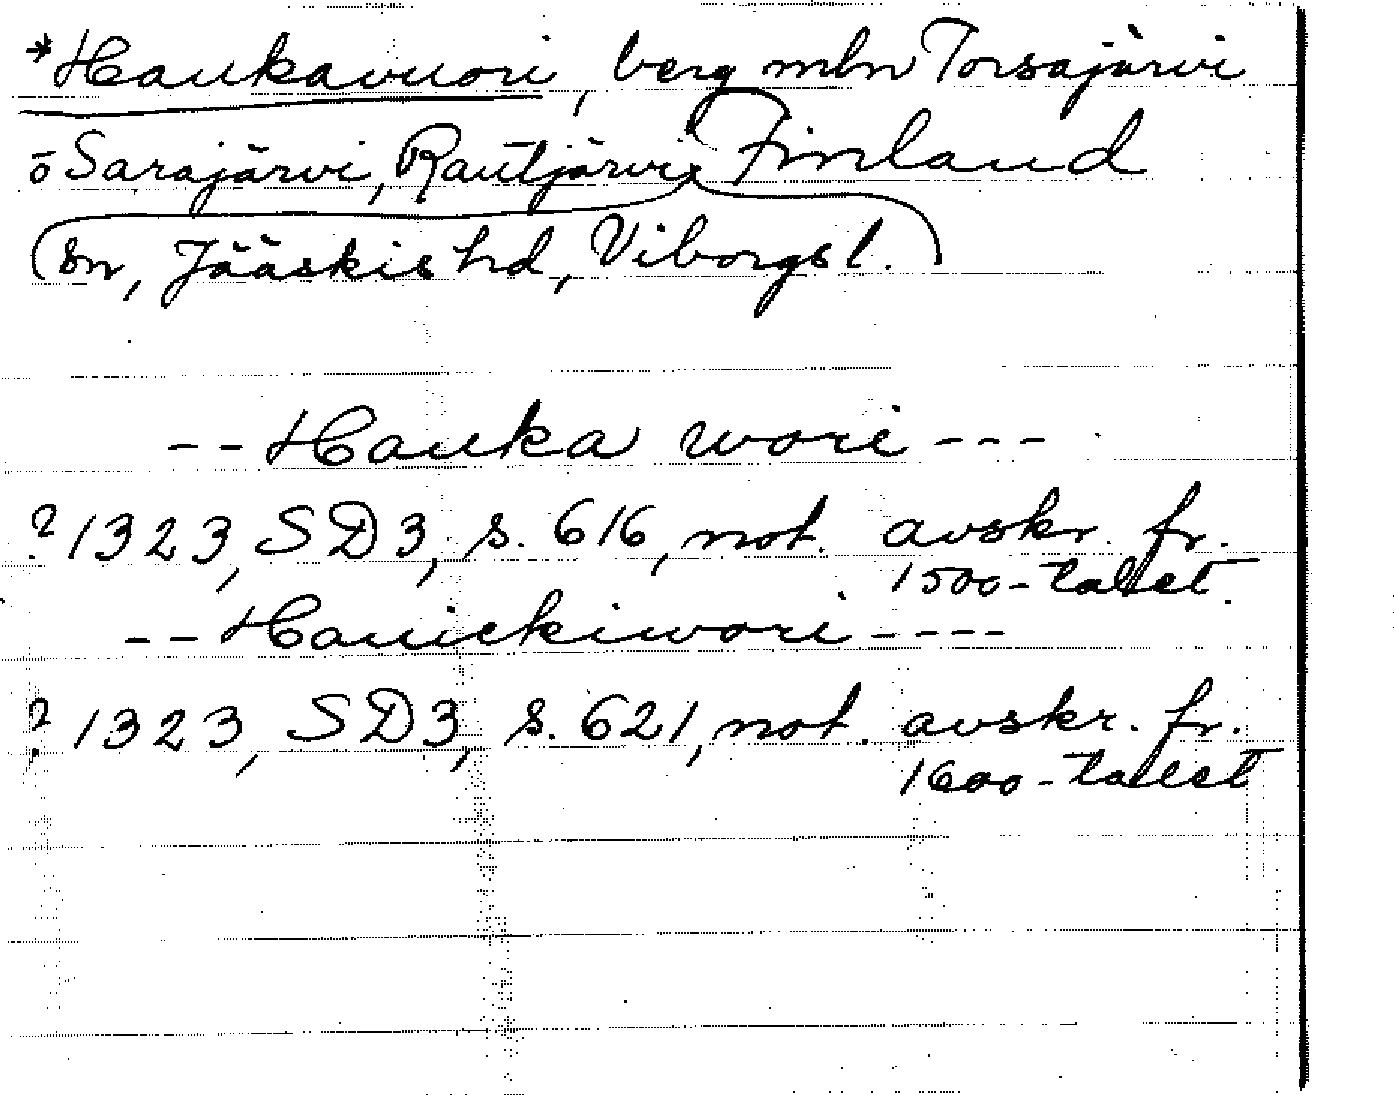 *Haukavuori, berg mln Torsajärvi
o Sarajärvi, Rautjärvi Finland
sn, Jääskis hd, Viborgs l.
-- Hauka wori ---
? 1323, SD3, s. 616, not. avskr. fr.
1500-talet.
-- Hauickiwori ----
? 1323, SD3, s. 621, not. avskr. fr.
1600-talet